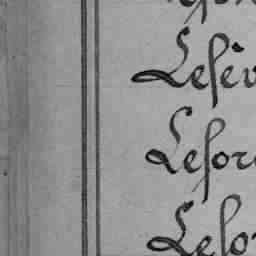 Lefèv
Lefor
Lefo